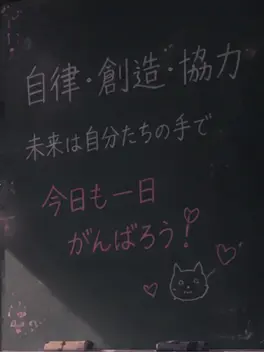 自律・創造・協力
未来は自分たちの手で
今日も一日
がんばろう!